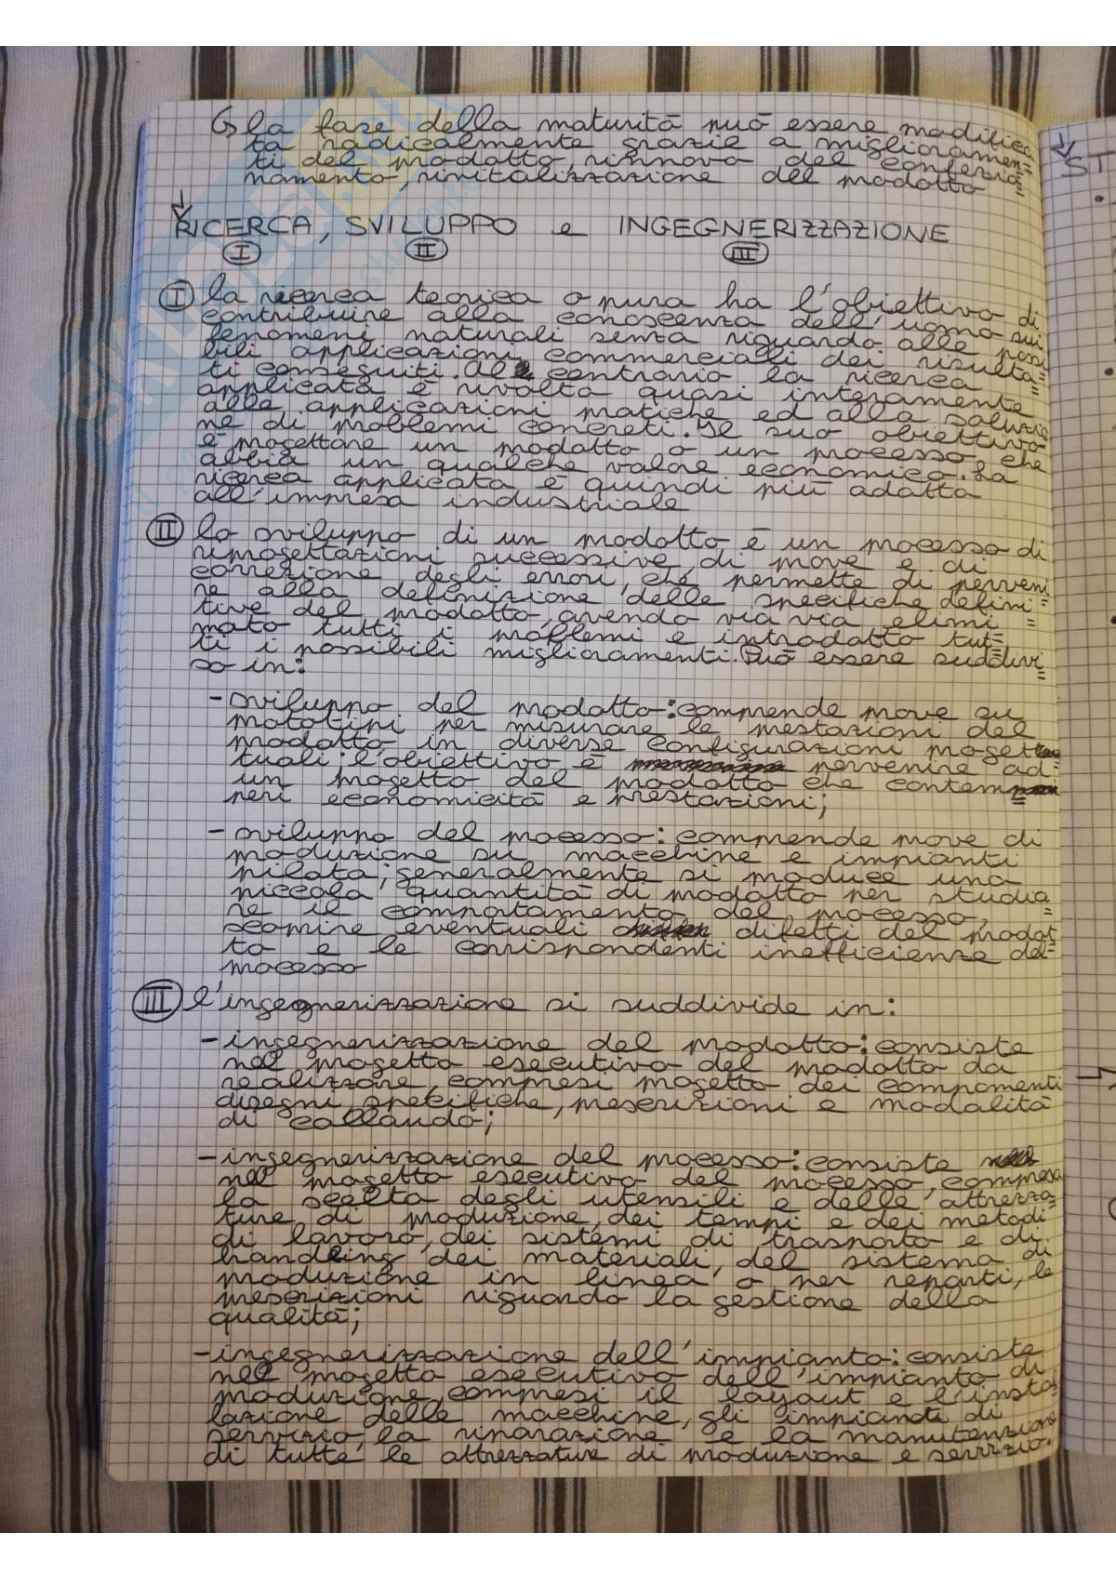 ↳ la fase della maturità può essere modifica=
ta radicalmente grazie a miglioramen=
ti del prodotto, rinnovo del confezio=
namento, rivitalizzazione del prodotto
RICERCA, SVILUPPO e INGEGNERIZZAZIONE
I II III
I la ricerca teorica o pura ha l'obiettivo di
contribuire alla conoscenza dell'uomo sui
fenomeni naturali senza riguardo alle possi
bili applicazioni commerciali dei risulta=
ti conseguiti. Al contrario la ricerca
applicata è rivolta quasi interamente
alle applicazioni pratiche ed alla soluzio
ne di problemi concreti. Il suo obiettivo
è progettare un prodotto o un processo che
abbia un qualche valore economico. La
ricerca applicata è quindi più adatta
all'impresa industriale
II lo sviluppo di un prodotto è un processo di
riprogettazioni successive, di prove e di
correzione degli errori, che permette di perveni
re alla definizione delle specifiche defini=
tive del prodotto, avendo via via elimi=
nato tutti i problemi e introdotto tut=
ti i possibili miglioramenti. Può essere suddivi
so in:
- sviluppo del prodotto: comprende prove su
prototipi per misurare le prestazioni del
prodotto in diverse configurazioni proget
tuali; l'obiettivo è pervenire ad
un progetto del prodotto che contem=
peri economicità e prestazioni;
- sviluppo del processo: comprende prove di
produzione su macchine e impianti
pilota; generalmente si produce una
piccola quantità di prodotto per studia=
re il comportamento del processo,
scoprire eventuali difetti del prodot
to e le corrispondenti inefficienze del
processo
III l'ingegnerizzazione si suddivide in:
- ingegnerizzazione del prodotto: consiste
nel progetto esecutivo del prodotto da
realizzare, compresi progetto dei componenti
disegni, specifiche, prescrizioni e modalità
di collaudo;
- ingegnerizzazione del processo: consiste
nel progetto esecutivo del processo, compresa
la scelta degli utensili e delle attrezza=
ture di produzione, dei tempi e dei metodi
di lavoro, dei sistemi di trasporto e di
handling dei materiali, del sistema di
produzione in linea o per reparti, le
prescrizioni riguardo la gestione della
qualità;
- ingegnerizzazione dell'impianto: consiste
nel progetto esecutivo dell'impianto di
produzione, compresi il layout e l'instal
lazione delle macchine, gli impianti di
servizio, la riparazione e la manutenzione
di tutte le attrezzature di produzione e servizio.
ST